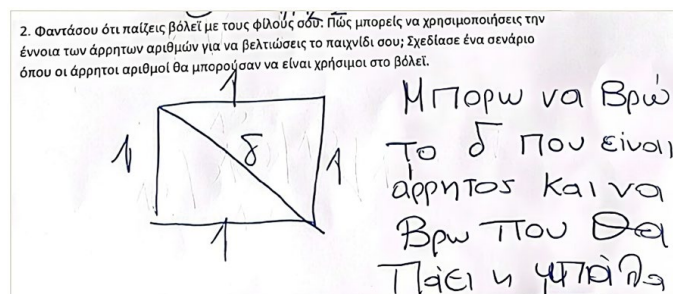 2. Φαντάσου ότι παίζεις βόλεϊ με τους φίλους σου. Πώς μπορείς να χρησιμοποιήσεις την
έννοια των άρρητων αριθμών για να βελτιώσεις το παιχνίδι σου; Σχεδίασε ένα σενάριο
όπου οι άρρητοι αριθμοί θα μπορούσαν να είναι χρήσιμοι στο βόλεϊ.
1
1 δ 1
1
Μπορω να Βρώ
το δ που είναι
άρρητος και να
Βρω που θα
Πάει η μπάλα